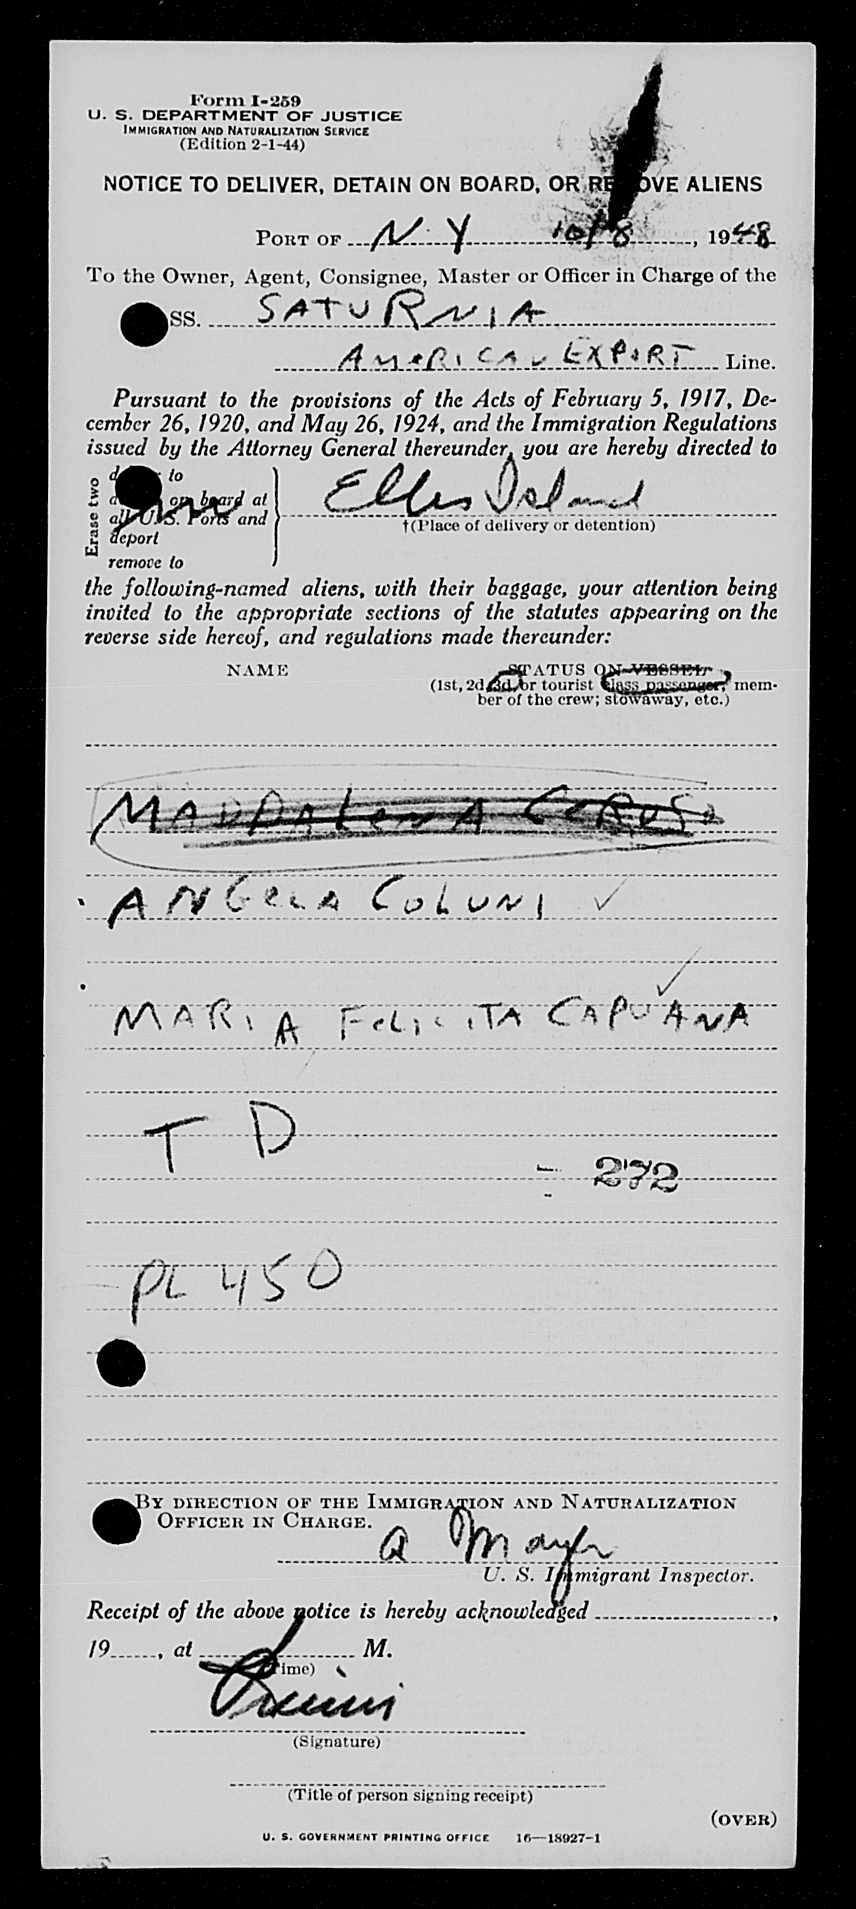 Form I-259
U. S. DEPARTMENT OF JUSTICE
IMMIGRATION AND NATURALIZATION SERVICE
(Edition 2-1-44)
NOTICE TO DELIVER, DETAIN ON BOARD, OR REMOVE ALIENS
PORT OF N.Y. 10/8, 1948
To the Owner, Agent, Consignee, Master or Officer in Charge of the
SS. SATURNIA
AMERICAN EXPORT Line.
Pursuant to the provisions of the Acts of February 5, 1917, De-
cember 26, 1920, and May 26, 1924, and the Immigration Regulations
issued by the Attorney General thereunder, you are hereby directed to
Erase two
to
on board at
all U.S. Ports and
deport
remove to
Ellis Island
†(Place of delivery or detention)
the following-named aliens, with their baggage, your attention being
invited to the appropriate sections of the statutes appearing on the
reverse side hereof, and regulations made thereunder:
NAME
STATUS ON VESSEL
(1st, 2d, 3d, or tourist class passenger, mem-
ber of the crew; stowaway, etc.)
MADDALENA CARUSO
ANGELA COLUNI ✓
MARIA FELICITA CAPUANA ✓
T D
272
PL 450
BY DIRECTION OF THE IMMIGRATION AND NATURALIZATION
OFFICER IN CHARGE.
a
U. S. Immigrant Inspector.
Receipt of the above notice is hereby acknowledged ,
19 , at M.
(Time)
(Signature)
(Title of person signing receipt)
(OVER)
U. S. GOVERNMENT PRINTING OFFICE 16—18927-1